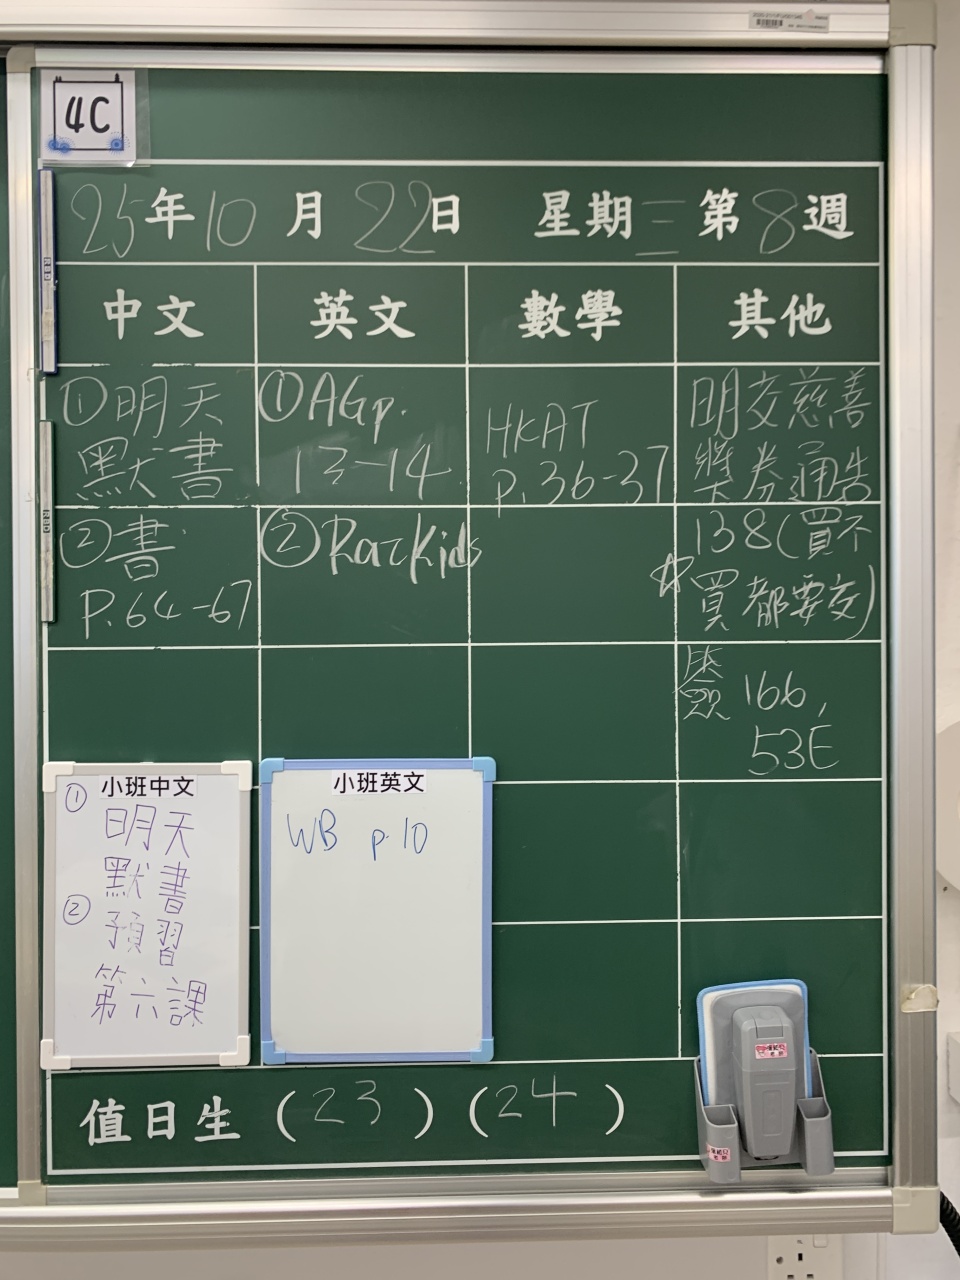 4C
25年10月22日 星期三 第8週
中文 英文 數學 其他
①明天
默書
②書
P.64-67
①AGp.
13-14
②RazKids
HKAT
p.36-37
明交慈善
獎券通告
138(買不
☆買都要交)
166,
53E
小班中文
①明天
默書
②預習
第六課
小班英文
WB p.10
值日生 (23) (24)